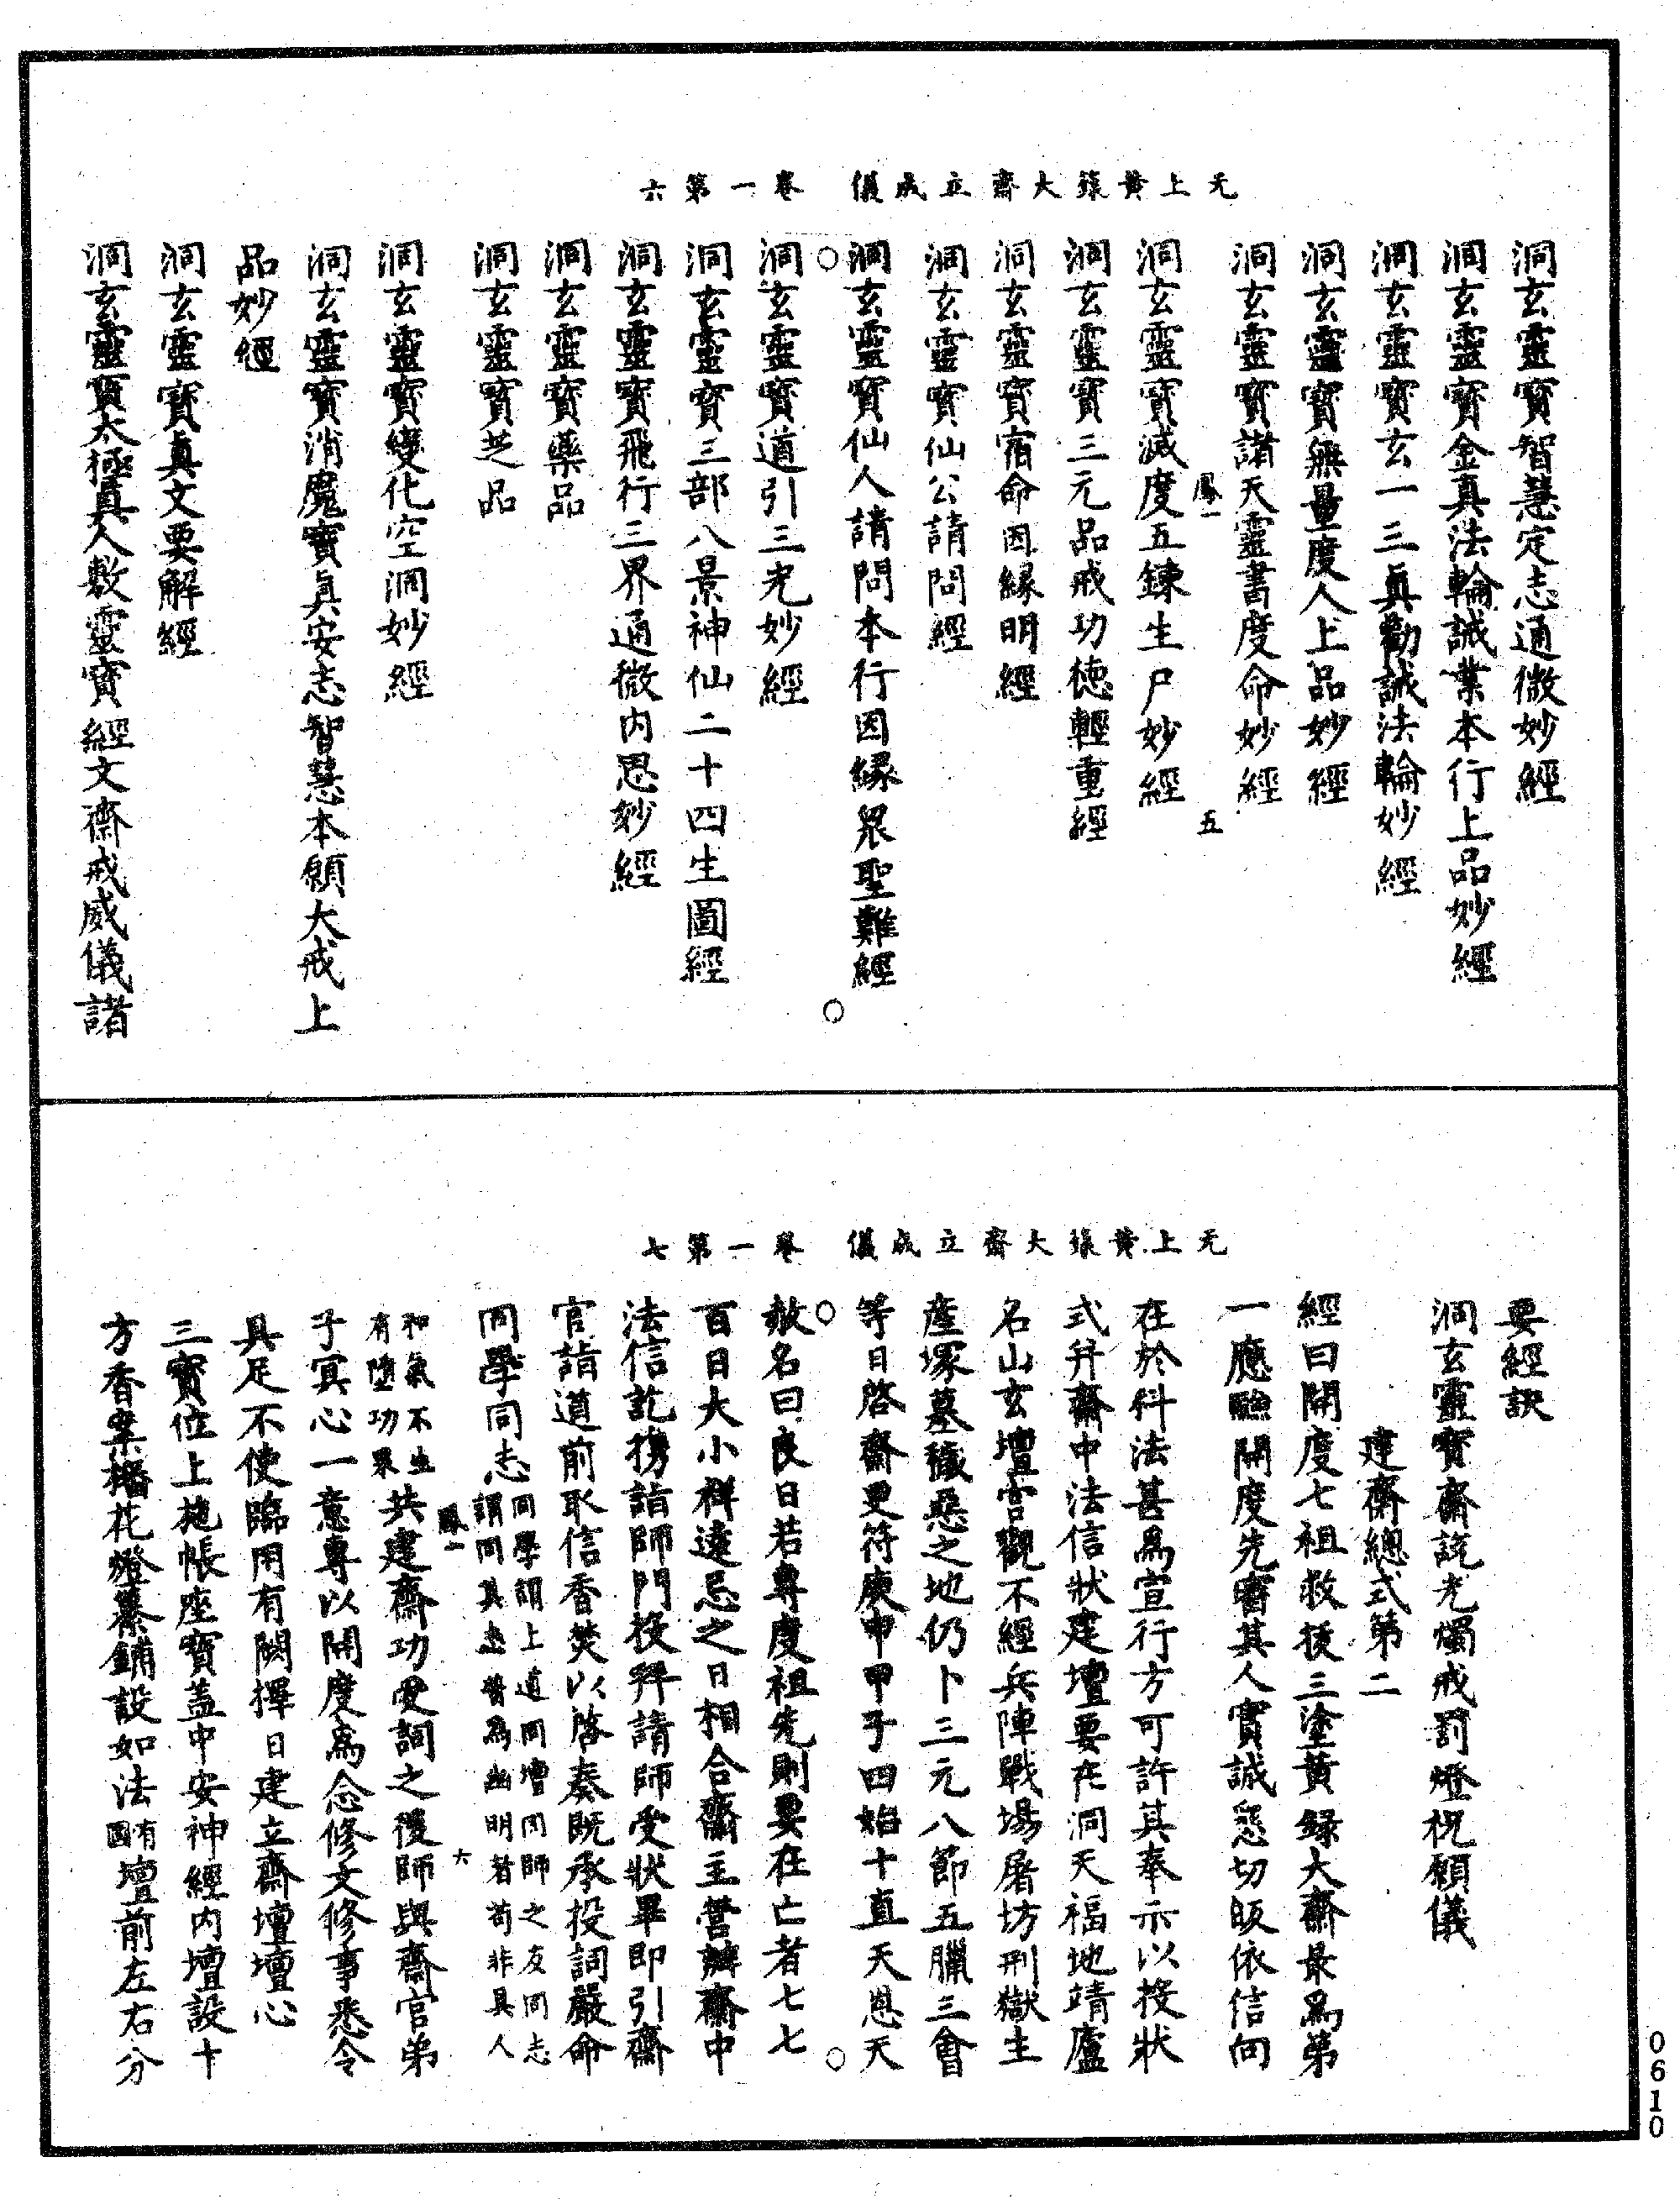 无上黃籙大齋立成儀　卷一第六
洞玄靈寶智慧定志通微妙經
洞玄靈寶金真法輪誡業本行上品妙經
洞玄靈寶玄一三真勸誡法輪妙經
洞玄靈寶無量度人上品妙經
洞玄靈寶諸天靈書度命妙經
鳳一　五
洞玄靈寶滅度五鍊生尸妙經
洞玄靈寶三元品戒功德輕重經
洞玄靈寶宿命因緣明經
洞玄靈寶仙公請問經
洞玄靈寶仙人請問本行因緣眾聖難經
洞玄靈寶道引三光妙經
洞玄靈寶三部八景神仙二十四生圖經
洞玄靈寶飛行三界通微内思妙經
洞玄靈寶藥品
洞玄靈寶芝品
洞玄靈寶變化空洞妙經
洞玄靈寶消魔寶真安志智慧本願大戒上
品妙經
洞玄靈寶真文要解經
洞玄靈寶太極真人敷靈寶經文齋戒威儀諸
无上黃籙大齋立成儀　卷一第七
要經訣
洞玄靈寶齋說光燭戒罰燈祝願儀
建齋總式第二
經曰開度七祖救拔三塗黃籙大齋最爲第
一應臨開度先審其人實誠懇切皈依信向
在於科法甚爲宣行方可許其奉示以投狀
式并齋中法信狀建壇要在洞天福地靖廬
名山玄壇宫觀不經兵陣戰場屠坊刑獄生
產塚墓穢惡之地仍卜三元八節五臘三會
等日啓齋更符庚申甲子四始十直天恩天
赦名日良日若專度祖先則要在亡者七七
百日大小祥遠忌之日相合齋主營辦齋中
法信訖擕詣師門投拜請師受狀畢即引齋
官詣道前取信香焚以啓奏既承投詞嚴命
同學同志同學謂上道同壇同師之友同志謂同其志皆爲幽明者苟非其人
和氣不生有墮功果共建齋功受詞之後師與齋官弟
鳳一　六
子冥心一意專以開度爲念修文修事悉令
具足不使臨用有闕擇日建立齋壇壇心
三寶位上施帳座寶蓋中安神經内壇設十
方香案旛花燈纂鋪設如法有圖壇前左右分
0610